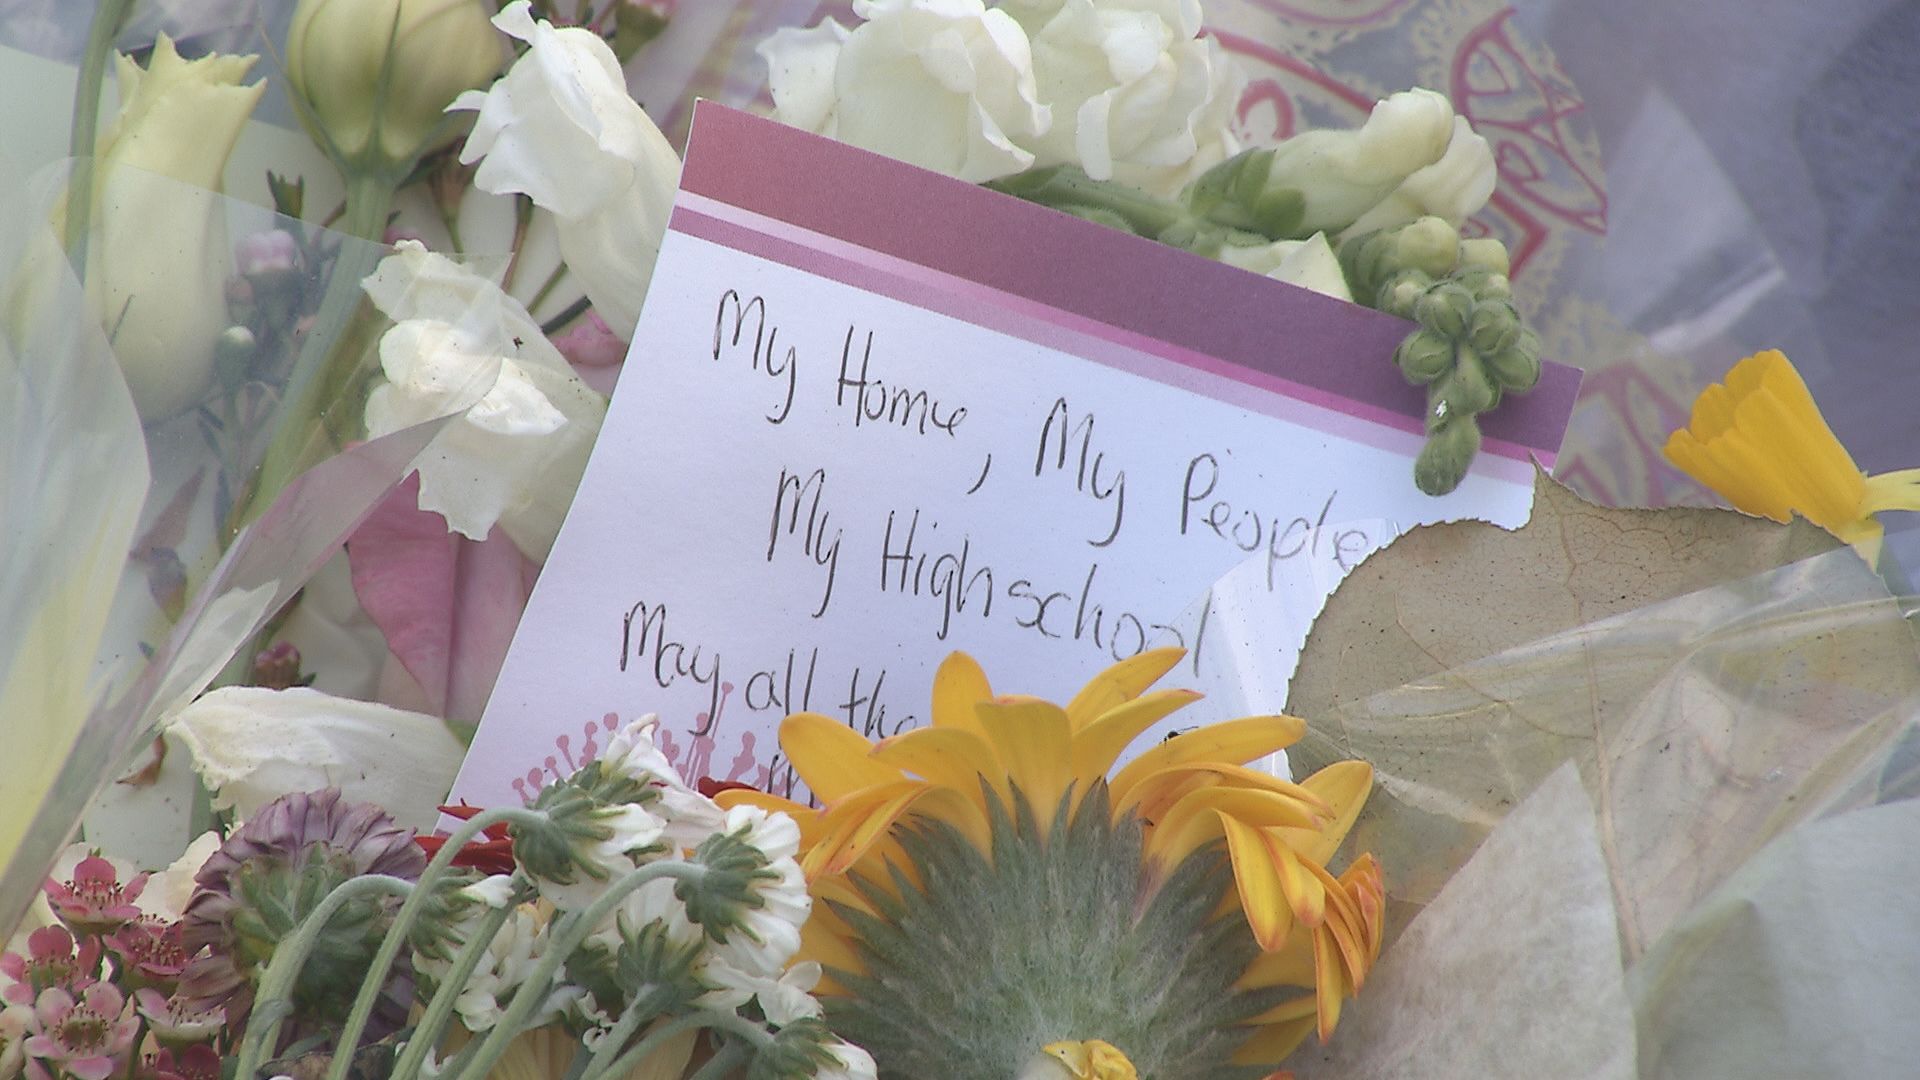 My Home, My People
My Highschool
May all the